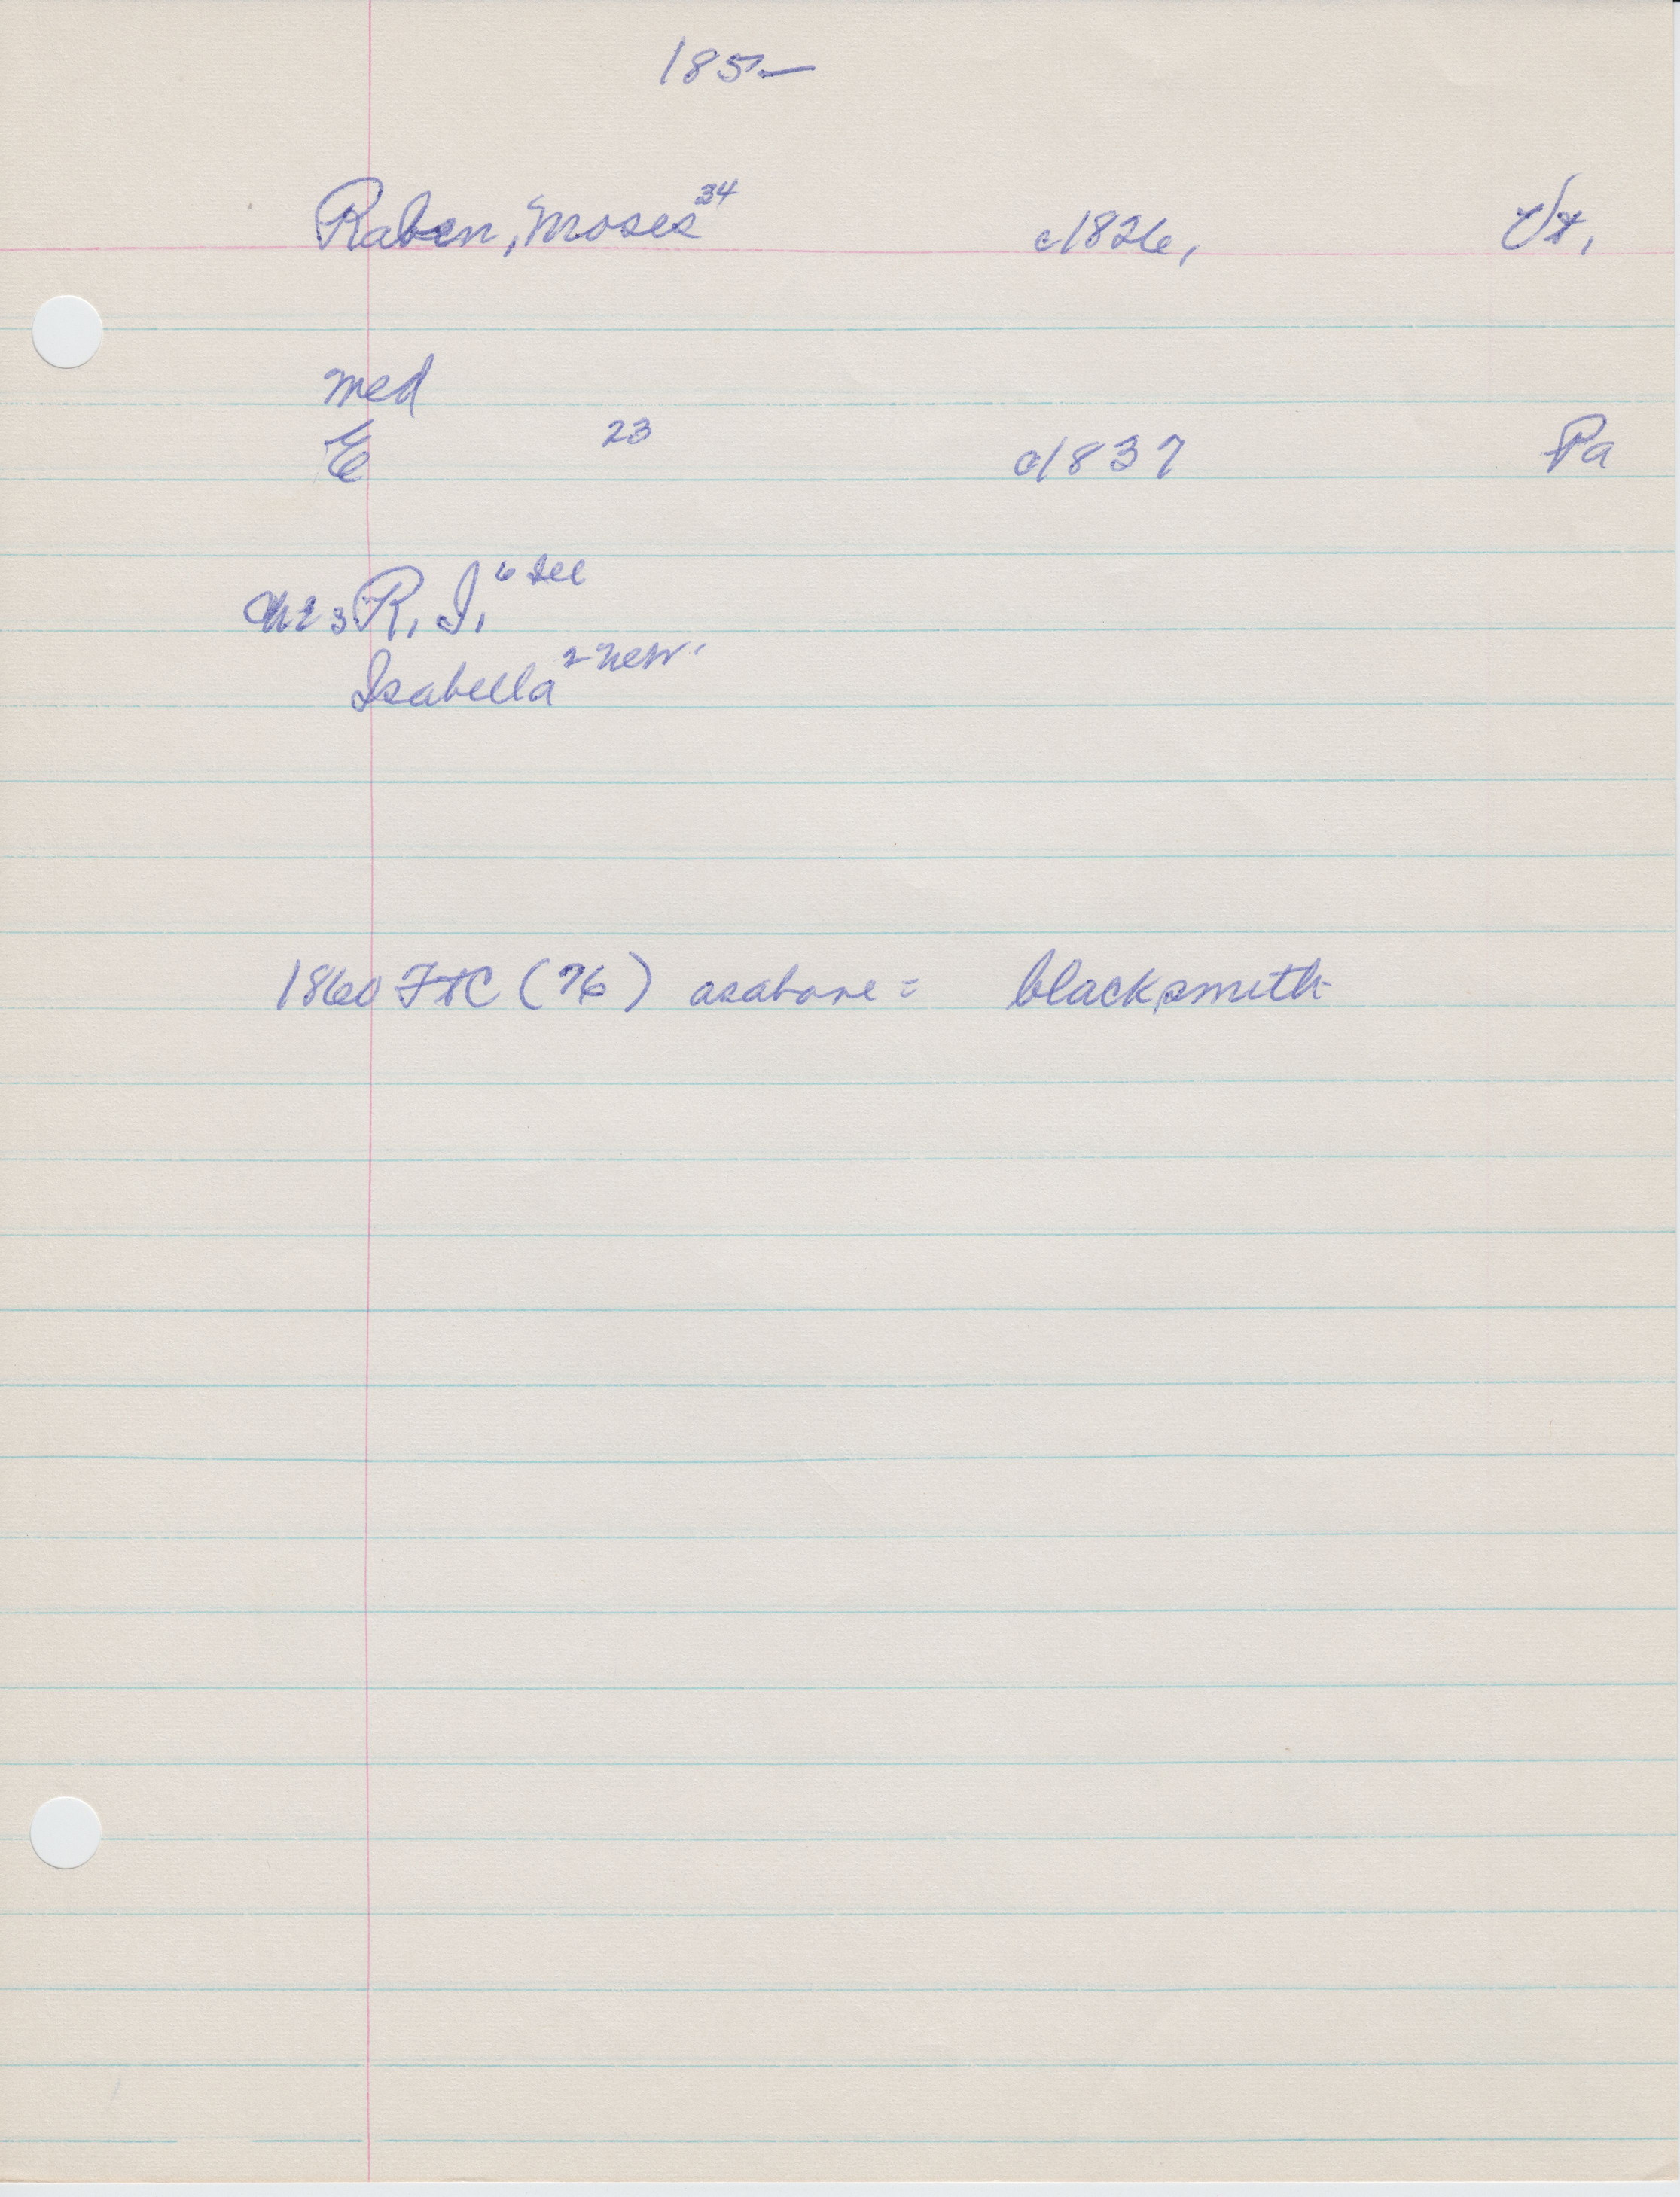 185-
Raben, Moses 34 c1826, Vt,
med
E 23 c1837 Pa
R. I. 6 Ill
Isabella 2 Neb.
1860 FTC (76) as above = blacksmith